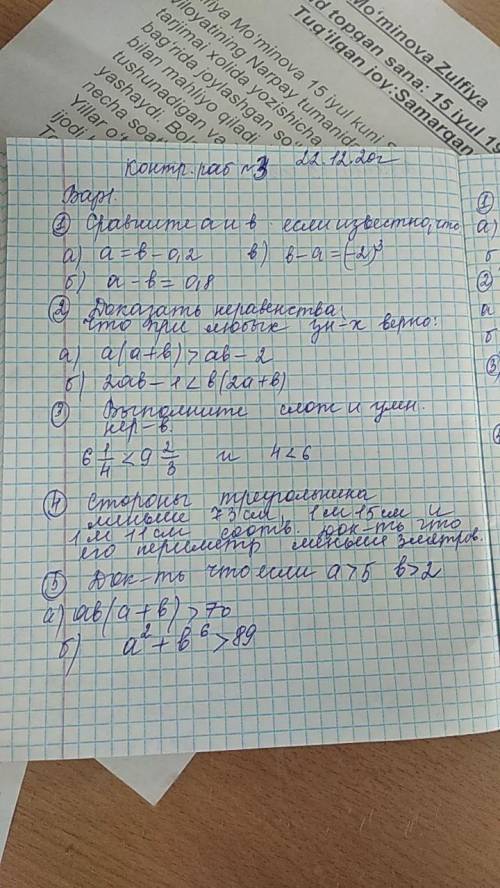 Mo‘minova Zulfiya
d topgan sana: 15 iyul 19
Tug‘ilgan joy:Samarqan
fiya Mo‘minova 15 iyul kuni
Viloyatining Narpay tumanid
tarjimai xolida yozishicha
bag‘rida joylashgan so‘
bilan mahliyo qiladi
tushunadigan va
yashaydi. Bol
necha soa
Yillar o‘t
ijodi
Контр. раб №3 22.12.20г
Вар1.
① Сравните а и в если известно, что
а) a = в - 0,2 в) в - a = (-2)³
б) a - в = 0,8
② Доказать неравенства:
что при любых зн-х верно:
а) a(a+в) > aв - 2
б) 2aв - 1 < в(2a+в)
③ Выполните слож и умн.
нер-в.
6 1/4 < 9 2/3 и 4 < 6
④ Стороны треугольника
меньше 73 см, 1 м 15 см и
1 м 11 см соотв. док-ть что
его периметр меньше 3 метров.
⑤ Док-ть что если a > 5 в > 2
а) aв(a+в) > 70
б) a² + в⁶ > 89
①
а)
б
②
а
б
③